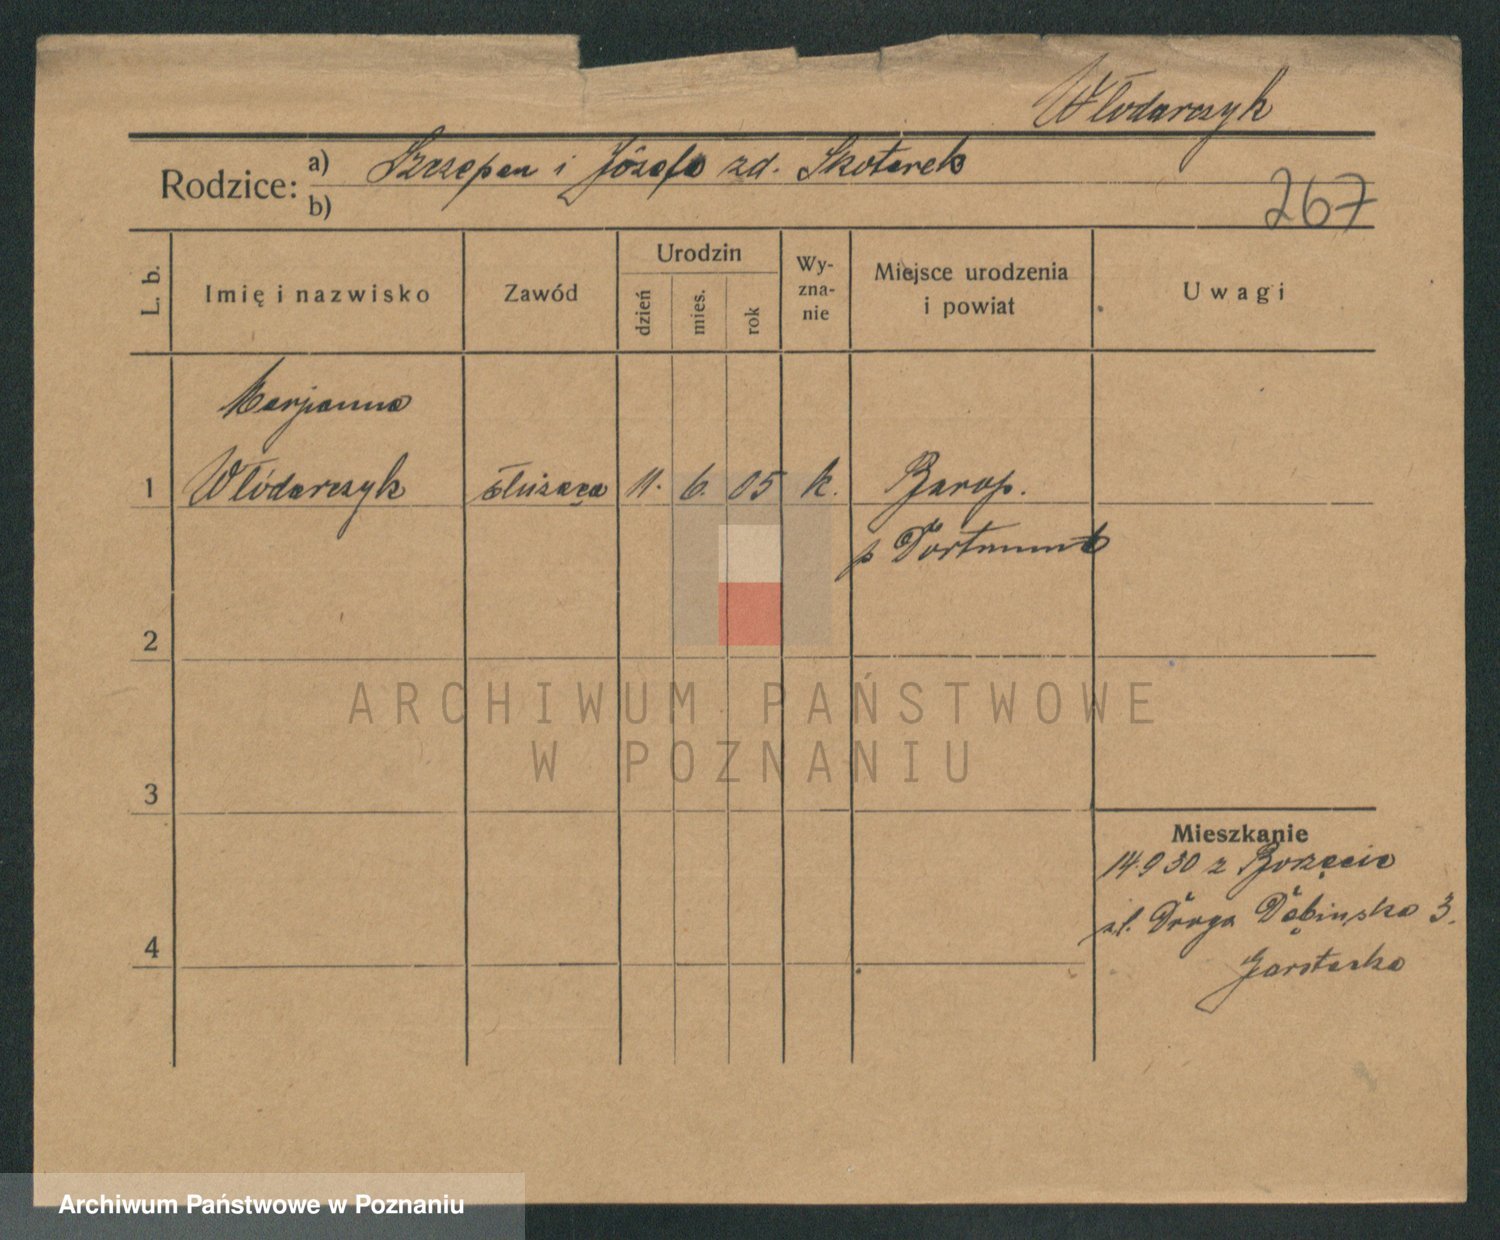 Włodarczyk
Rodzice: a) Szczepan i Józefa zd. Skotarek
b)
267
L. b.
Imię i nazwisko
Zawód
Urodzin
dzień
mies.
rok
Wy-
zna-
nie
Miejsce urodzenia
i powiat
Uwagi
Marjanna
1 Włódarczyk służąca 11. 6. 05 k. Barop.
p Dortmund
2
3
4
Mieszkanie
14.9 30 z Borzęcic
ul. Droga Dębinska 3.
ARCHIWUM PAŃSTWOWE
W POZNANIU
Archiwum Państwowe w Poznaniu